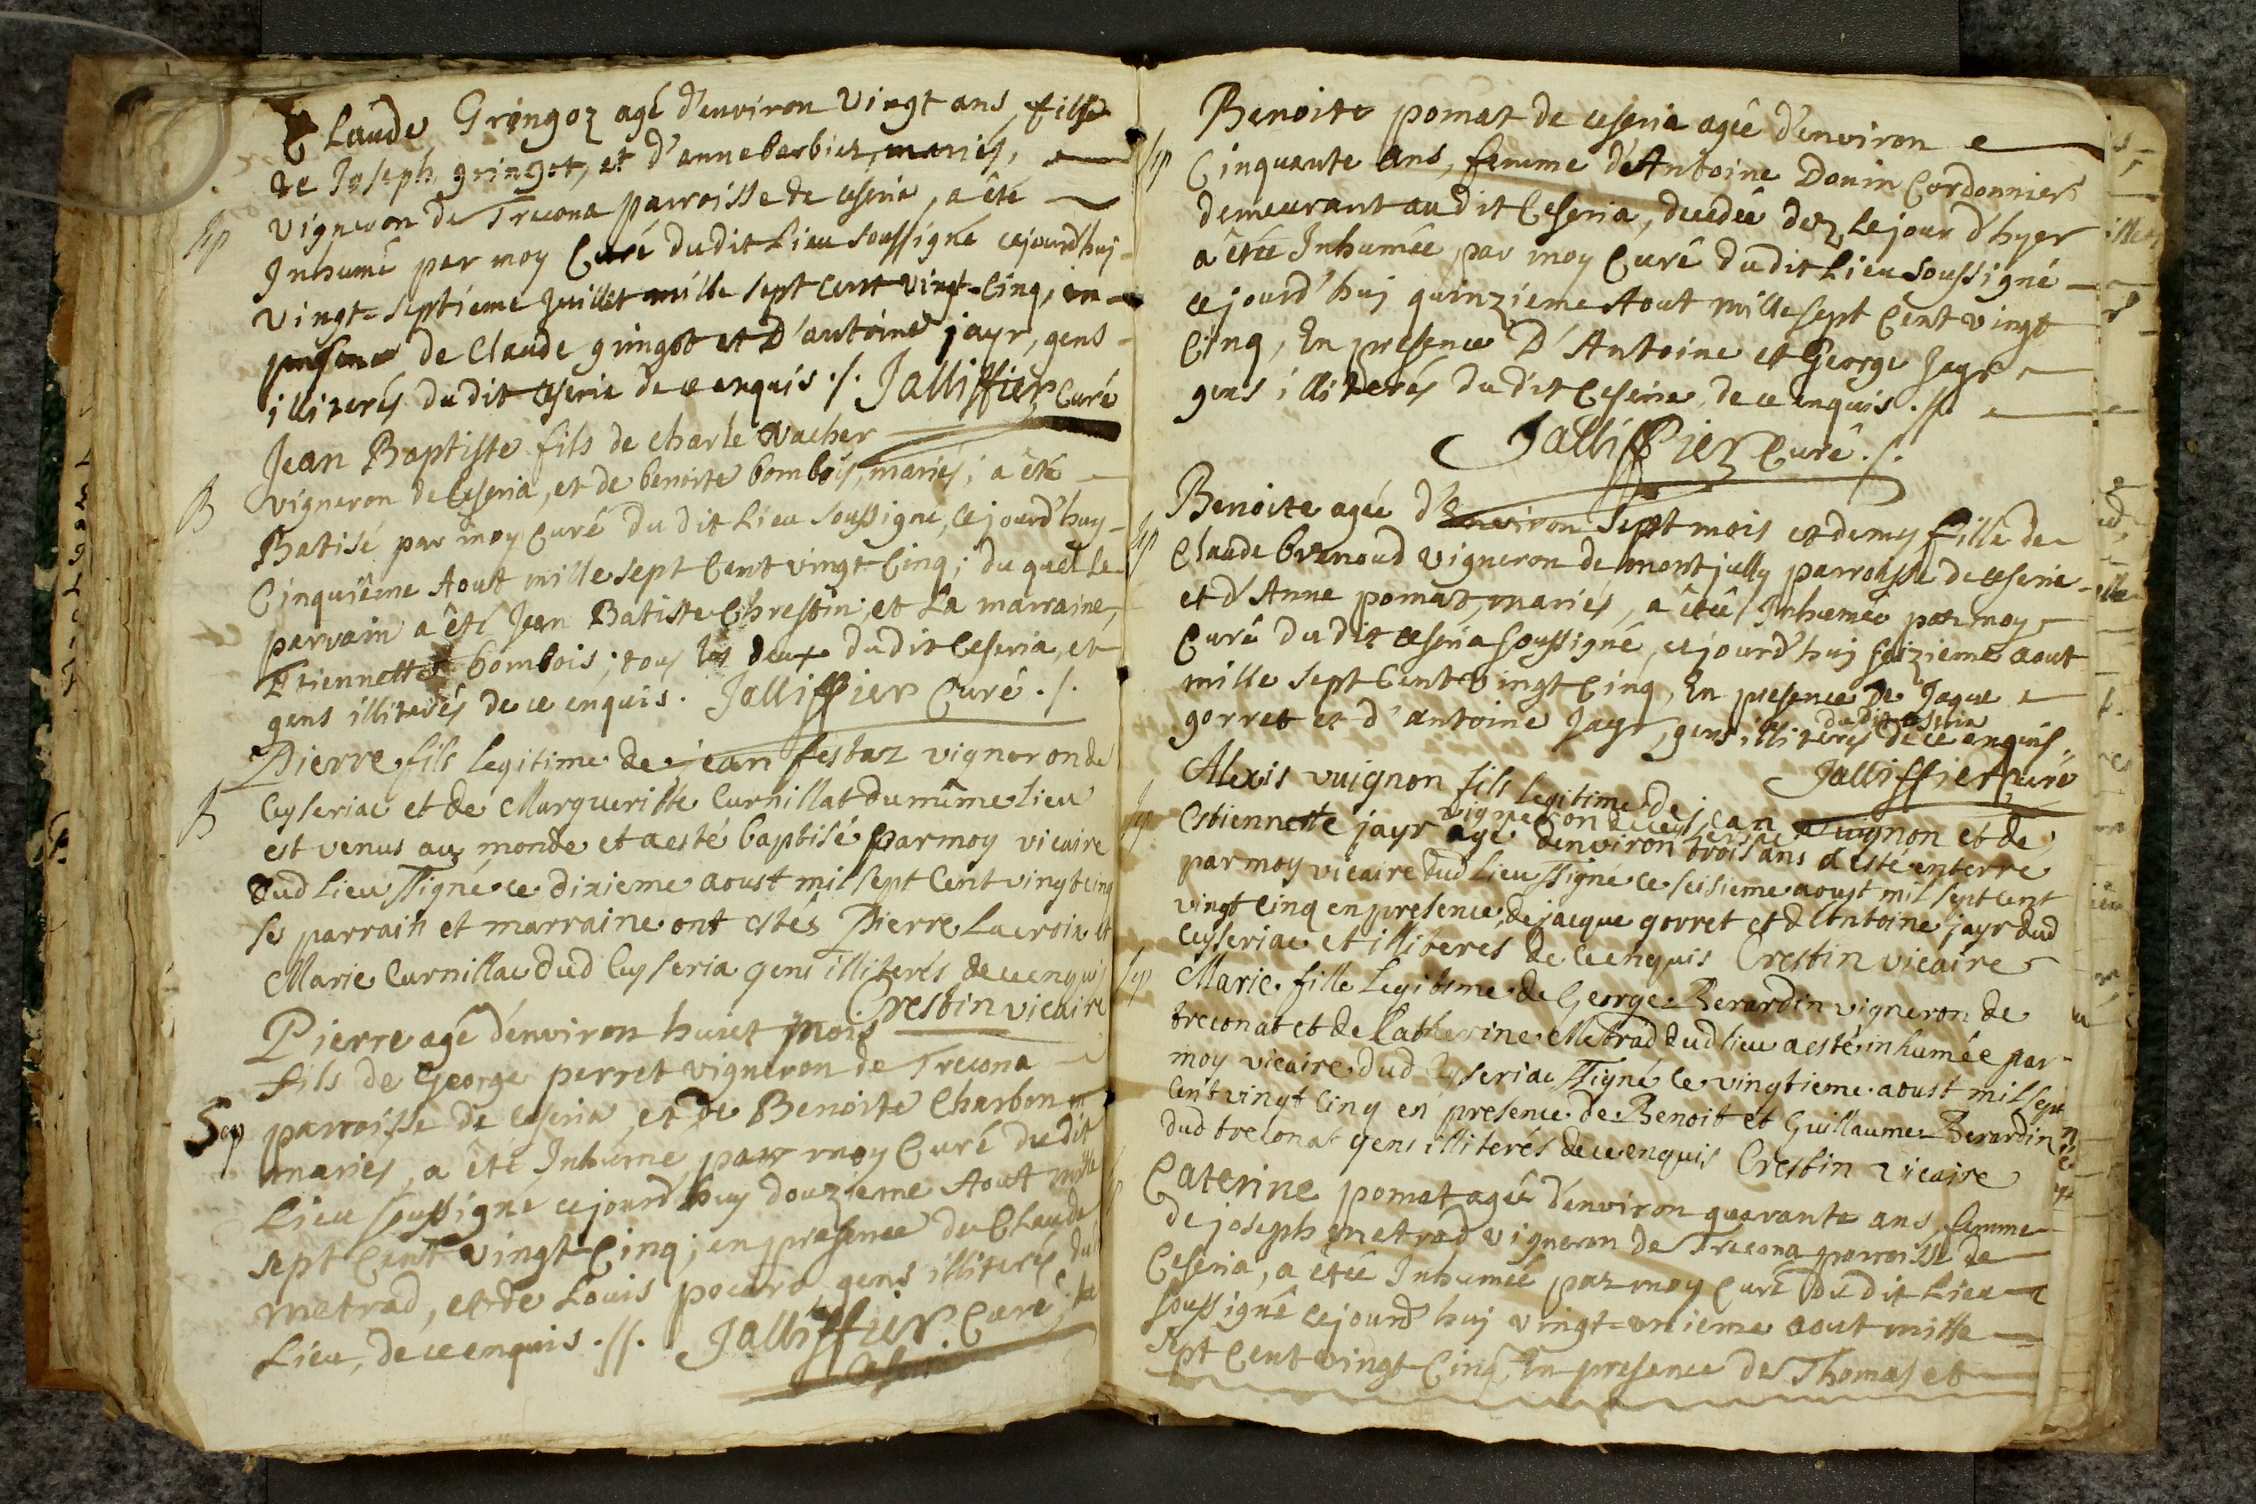 Claude Gringoz agé d'environ vingt ans, fils
de Joseph gringot, et d'anne barbier, mariés,
Sep
vigneron de Trecona parroisse de ceseria, a été
Inhumé par moy Curé dudit Lieu soussigné cejourd'huj
vingt-septieme Juillet mille sept cent vingt-Cinq, en
presence de Claude gringot et D'antoine jayr, gens
illiterés dudit ceseria de ce enquis ./. Jalliffier Curé
Jean Baptiste fils de charle vacher
B
vigneron de Ceseria, et de benoite bombois, mariés; a été
Batisé par moy Curé du dit Lieu soussigné, ce jourd'huy
Cinquième Aoust mille sept Cent vingt-Cinq; du quel le
parrain a été Jean Batiste Chrestin; et La marraine,
Etiennette bombois; tous les deux dudit Ceseria, et
gens illiterés de ce enquis. Jalliffier Curé ./.
Pierre fils legitime de jean festaz vigneron de
B
Ceyseriac et de Margueritte Curnillat du même lieu
est venus au monde et a esté baptisé par moy vicaire
dud lieu ssigné ce dixieme aoust mil sept Cent vingt cinq
se parrain et marraine ont estés Pierre Lacroix et
Marie Curnillac dud Ceyseria gens illiterés de ce enquis
Crestin vicaire
Pierre agé d'environ huict mois
fils de George perret vigneron de Trecona
Sep
parroisse de ceseria et de Benoite Charbon
mariés, a été Inhumé par moy Curé du dit
Lieu soussigné cejourd'huy douzieme Aout mille
sept Cent vingt-Cinq; en presence de Claude
metrad, et de Louis pocard gens illiterés du
Lieu, de ce enquis .//. Jalliffier Curé
Benoite pomat de ceseria agée d'environ
Sep
Cinquante ans, femme d'Antoine Donin Cordonnier
demeurant au dit Ceseria, decedée dez le jour d'hyer
a étée Inhumée par moy Curé dudit Lieu soussigné
ce jourd'huj quinzieme Aout mille sept Cent vingt
Cinq, En presence D'Antoine et George Jayr
gens illiterés du dit Ceseria, de ce enquis .//.
Jalliffier Curé ./.
Benoite agée d'Environ sept mois et demy fille de
Sep
Claude brenoud vigneron de montjully parroisse de ceseria
et d'Anne pomat, mariés, a étée Inhumée par moy
Curé du dit ceseria soussigné, ce jourd'huj seizieme aout
mille sept Cent vingt Cinq, En presence de Jaque
gorret et d'antoine Jayr, gens illiterés de ce enquis.
dudit ceseria
Jalliffier Curé
Alexis vuignon fils legitime de jean vuignon et de
Sep
vigneron de ceyseriac
Estiennette jayr agé d'environ trois ans a esté enterré
par moy vicaire dud lieu ssigné ce seisieme aoust mil sept cent
vingt cinq en presence de jacque gorret et d Antoine jayr dud
Ceyseriac et illiteres de ce enquis Crestin vicaire
Sep
Marie fille Legitime de George Berardin vigneron de
treconat et de Catherine Metrad dud lieu a esté inhumée par
moy vicaire dud Ceyseriac ssigné ce vingtieme aoust mil sept
Cent vingt cinq en presence de Benoit et Guillaume Berardin
dud treconat gens illiterés de ce enquis Crestin vicaire
Caterine pomat agée d'environ quarante ans, femme
de joseph metrad vigneron de Trecona parroisse de
Ceseria, a étée Inhumée par moy Curé du dit Lieu
soussigné cejourd'huj vingt-unieme aout mille
sept Cent vingt-Cinq, En presence de Thomas et